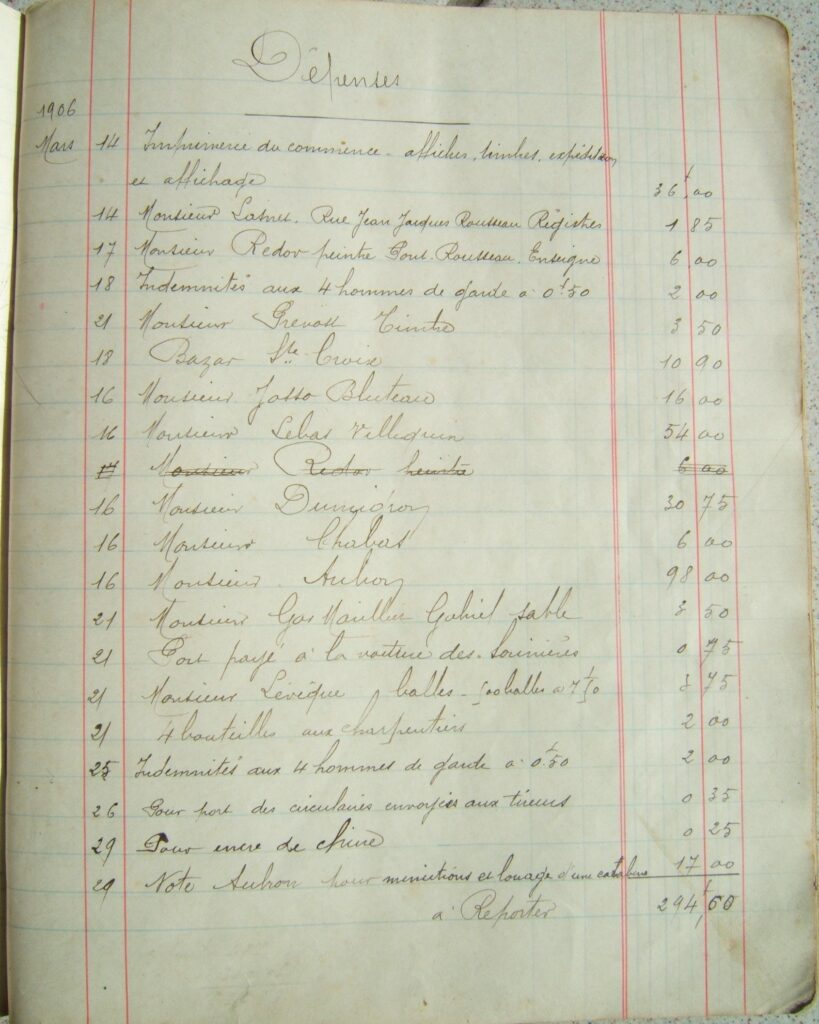 Dépenses
1906
Mars 14 Imprimerie du commerce - affiches, timbres, expédition
et affichage 36f,00
14 Monsieur Lasnet. Rue Jean Jacques Rousseau Registres 1 85
17 Monsieur Redor peintre Pont-Rousseau. Enseigne 6,00
18 Indemnités aux 4 hommes de garde à 0f50 2 00
21 Monsieur Prevost Timbre 3 50
18 Bazar Ste Croix 10 90
16 Monsieur Josso Bluteau 16 00
16 Monsieur Lebas Villeguin 54 00
17 Monsieur Redor peintre 6 00
16 Monsieur 30 75
16 Monsieur Chabas 6 00
16 Monsieur Aubron 98 00
21 Monsieur Gabriel sable 3 50
21 Port payé à la voiture des Sorinières 0 75
21 Monsieur Lévêque balles - 500 balles à 7f50 3 75
21 4 bouteilles aux charpentiers 2 00
25 Indemnités aux 4 hommes de garde à 0f50 2 00
26 Pour port des circulaires envoyées aux tireurs 0 35
29 Pour encre de chine 0 25
29 Note Aubron pour munitions et louage d'une carabine 17 00
à Reporter 294f,60